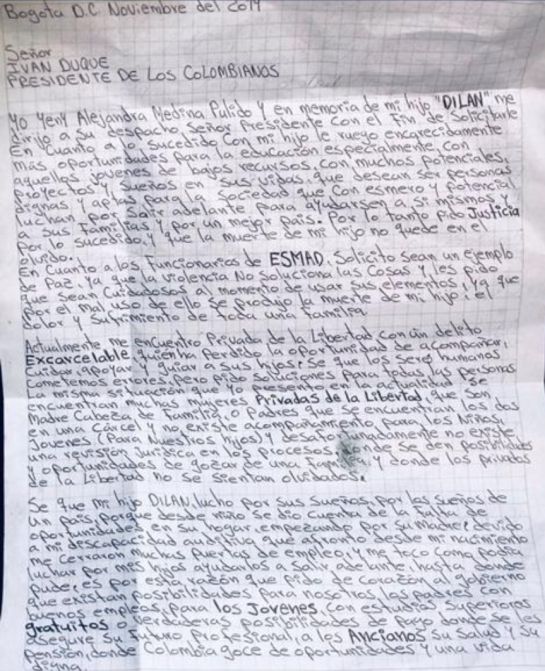 Bogota D.C Noviembre del 2019
Señor
IVAN DUQUE
PRESIDENTE DE LOS COLOMBIANOS
Yo Yeny Alejandra Medina Pulido y en memoria de mi hijo "DILAN" me
dirijo a su despacho, Señor Presidente con el fin de Solicitarle
En cuanto a lo sucedido con mi hijo le ruego encarecidamente
más oportunidades para la educación especialmente, con
aquellos jovenes de bajos recursos, con muchos potenciales,
proyectos y sueños en sus vidas, que desean ser personas
dignas y aptas para la sociedad que con esmero y potencial
luchan por salir adelante para ayudarsen a si mismos y
a sus familias y por un mejor país. Por lo tanto pido Justicia
por lo sucedido, y que la muerte de mi hijo no quede en el
olvido.
En cuanto a los funcionarios de ESMAD. Solicito sean un ejemplo
de Paz, ya que la violencia No soluciona las Cosas y les pido
que sean cuidadosos al momento de usar sus elementos, ya que
por el mal uso de ello se produjo la muerte de mi hijo, el
dolor y sufrimiento de toda una familia.
Actualmente me encuentro Privada de la Libertad, con un delito
Excarcelable, quien ha perdido la oportunidad de acompañar,
cuidar, apoyar y guiar a sus hijos, Se que los seres humanos
cometemos errores, pero pido soluciones para todas las personas
La misma situación que yo presento en la actualidad se
encuentran muchas mujeres Privadas de la Libertad, que son
Madre Cabeza de familia, o Padres que se encuentran los dos
en una Cárcel y no existe acompañamiento para los Niños,
Jovenes (Para Nuestros hijos) y desafortunadamente no existe
una revisión Juridica en los procesos, donde se den posibilidades
y oportunidades de gozar de una familia y donde los privados
de la Libertad no se sientan olvidados.
Se que mi hijo DILAN, lucho por sus sueños, por los sueños de
un país, porque desde niño se dio cuenta de la falta de
oportunidades en su hogar, empezando por su madre, devido
a mi descapacidad auditiva que afronto desde mi nacimiento
me cerraron muchas puertas de empleo, y me toco como podia
luchar por mis hijos ayudarlos a salir adelante, hasta donde
pude; es por esta razón que pido de corazón al gobierno
que existan posibilidades para nosotros los padres con
buenos empleos, para los Jovenes, con estudios Superiores
gratuitos o verdaderas posibilidades de pago donde se les
asegure su futuro profesional, a los Ancianos su Salud y su
pensión, donde Colombia goce de oportunidades y una vida
digna.